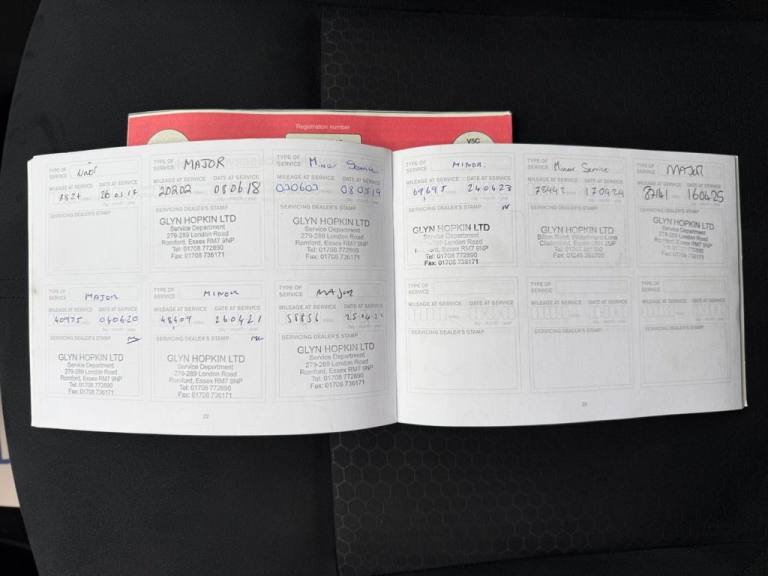 Registration number
V5C
TYPE OF SERVICE
MILEAGE AT SERVICE DATE AT SERVICE
26 05 17
SERVICING DEALER'S STAMP
TYPE OF SERVICE MAJOR
MILEAGE AT SERVICE DATE AT SERVICE
20202 08 06 18
SERVICING DEALER'S STAMP
GLYN HOPKIN LTD
Service Department
279-289 London Road
Romford, Essex RM7 9NP
Tel: 01708 772890
Fax: 01708 736171
TYPE OF SERVICE Minor Service
MILEAGE AT SERVICE DATE AT SERVICE
08 05 19
SERVICING DEALER'S STAMP
GLYN HOPKIN LTD
Service Department
279-289 London Road
Romford, Essex RM7 9NP
Tel: 01708 772890
Fax: 01708 736171
MAJOR
MILEAGE AT SERVICE DATE AT SERVICE
40975 040620
SERVICING DEALER'S STAMP
GLYN HOPKIN LTD
Service Department
279-289 London Road
Romford, Essex RM7 9NP
Tel: 01708 772890
Fax: 01708 736171
MINOR
MILEAGE AT SERVICE DATE AT SERVICE
48409 260421
SERVICING DEALER'S STAMP
GLYN HOPKIN LTD
Service Department
279-289 London Road
Romford, Essex RM7 9NP
Tel: 01708 772890
Fax: 01708 736171
TYPE OF SERVICE MAJOR
MILEAGE AT SERVICE DATE AT SERVICE
58856
SERVICING DEALER'S STAMP
GLYN HOPKIN LTD
Service Department
279-289 London Road
Romford, Essex RM7 9NP
Tel: 01708 772890
Fax: 01708 736171
22
TYPE OF SERVICE MINOR.
MILEAGE AT SERVICE DATE AT SERVICE
69695 260623
SERVICING DEALER'S STAMP
GLYN HOPKIN LTD
Service Department
London Road
Essex RM7 9NP
Tel: 01708 772890
Fax: 01708 736171
TYPE OF SERVICE Minor Service
MILEAGE AT SERVICE DATE AT SERVICE
SERVICING DEALER'S STAMP
GLYN HOPKIN LTD
Service Department
TYPE OF SERVICE MAJOR
MILEAGE AT SERVICE DATE AT SERVICE
87141 160425
SERVICING DEALER'S STAMP
GLYN HOPKIN LTD
Service Department
279-289 London Road
Romford, Essex RM7 9NP
Tel: 01708 772890
Fax: 01708 736171
TYPE OF SERVICE
MILEAGE AT SERVICE DATE AT SERVICE
SERVICING DEALER'S STAMP
TYPE OF SERVICE
MILEAGE AT SERVICE DATE AT SERVICE
SERVICING DEALER'S STAMP
TYPE OF SERVICE
MILEAGE AT SERVICE DATE AT SERVICE
SERVICING DEALER'S STAMP